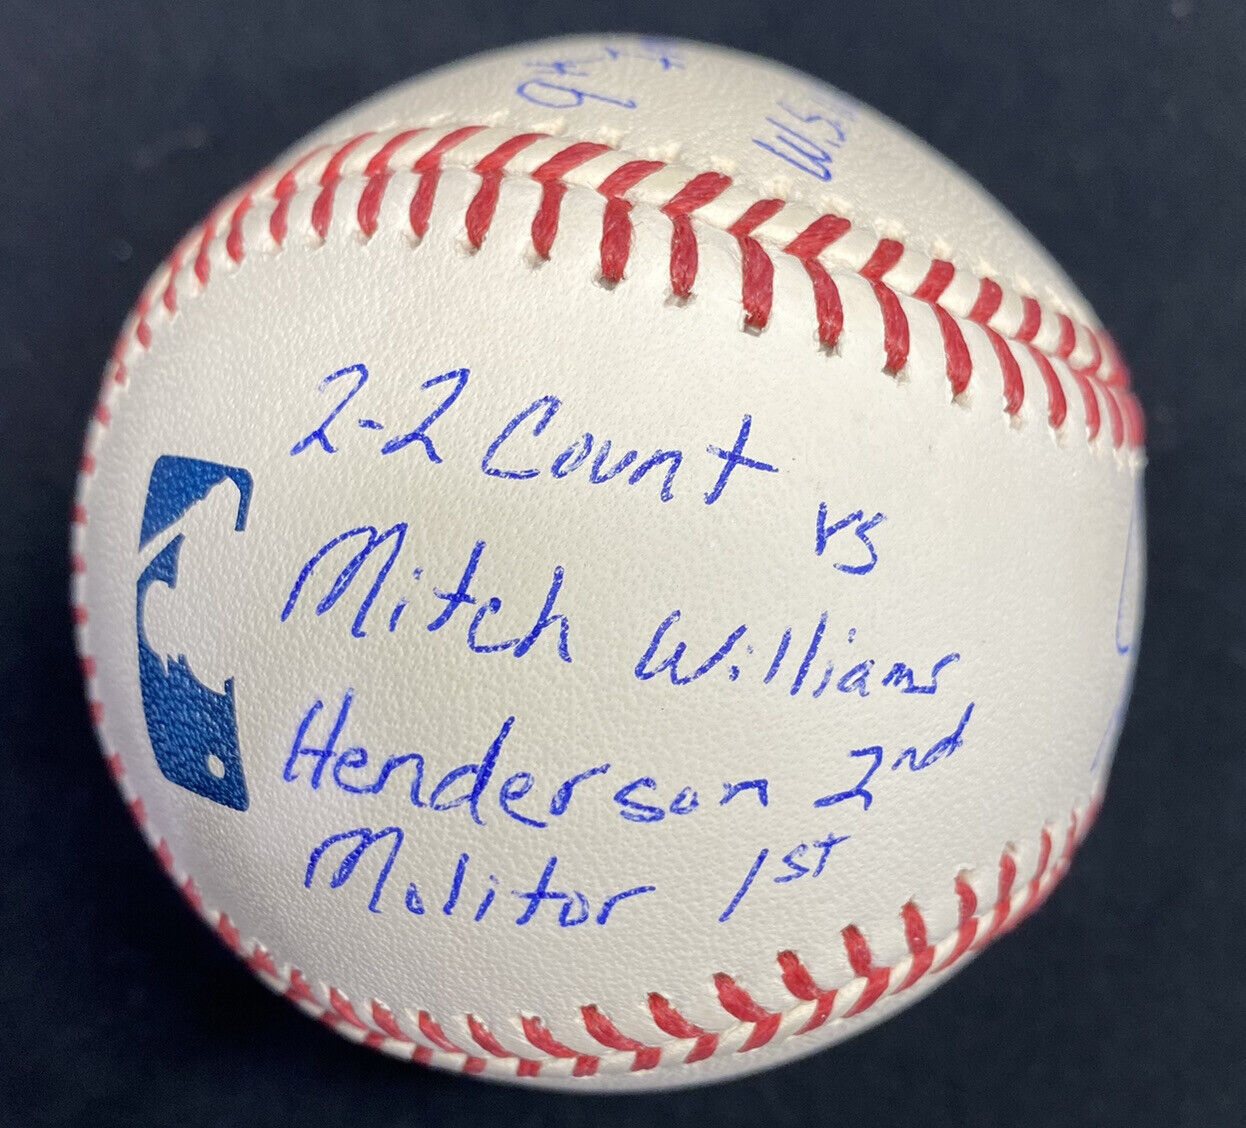 W.S.
2-2 Count vs
Mitch Williams
Henderson 2nd
Molitor 1st